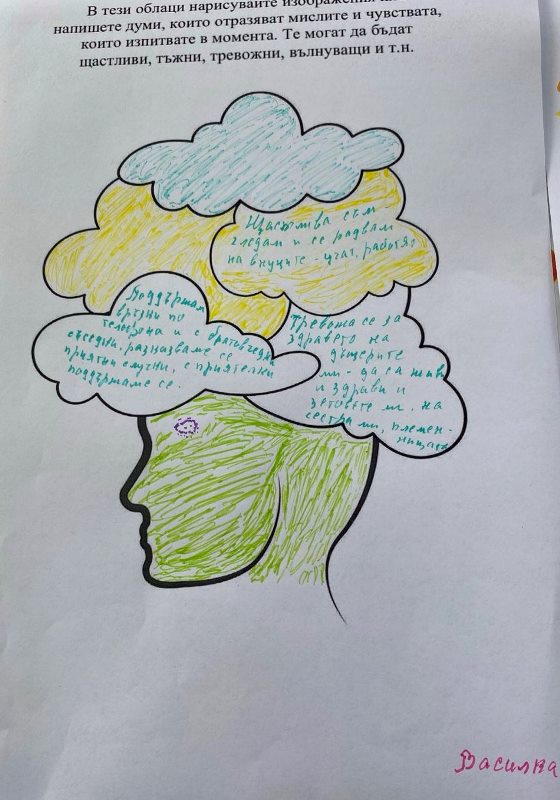 В тези облаци нарисувайте изображения
напишете думи, които отразяват мислите и чувствата,
които изпитвате в момента. Те могат да бъдат
щастливи, тъжни, тревожни, вълнуващи и т.н.
Щастлива съм
гледам и се радвам
на внуците - учат, работят
Поддържам
връзки по
телефона и с братовчедки
съседки, разхождаме се
приятни случки, с приятелки
поддържаме се.
Тревожа се за
здравето на
дъщерите
ми - да са живи
и здрави и
зетьовете ми, на
сестра ми, племен-
ницата
Василка